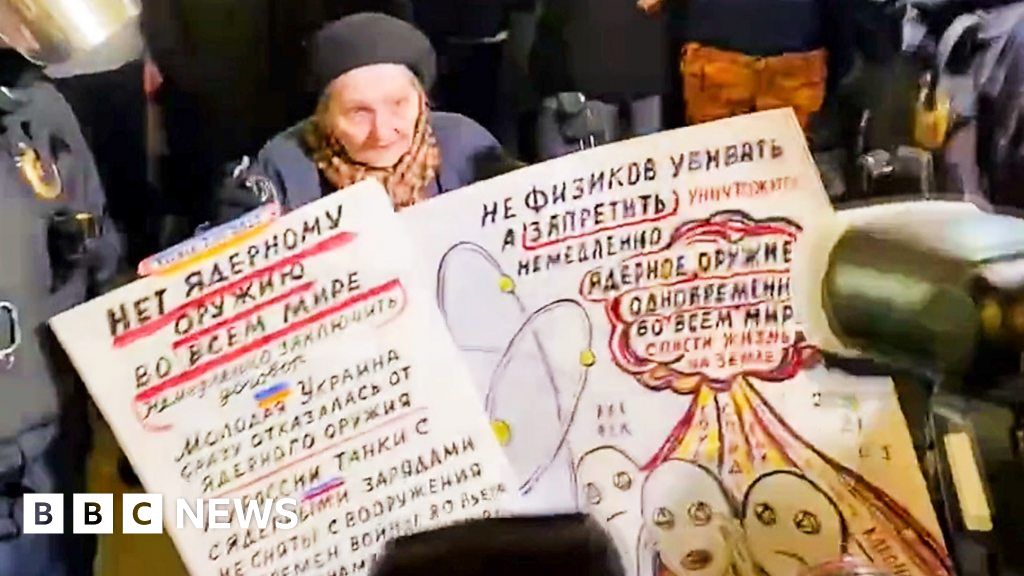 НЕТ ЯДЕРНОМУ
ОРУЖИЮ
ВО ВСЕМ МИРЕ
ЗАКЛЮЧИТЬ
ДОГОВОР
МОЛОДАЯ УКРАИНА
СРАЗУ ОТКАЗАЛАСЬ ОТ
ЯДЕРНОГО ОРУЖИЯ
РОССИИ ТАНКИ С
ЗАРЯДАМИ
НЕ СНЯТЫ С ВООРУЖЕНИЯ
ВОЙНЫ ВО ВЬЕТ
НЕ ФИЗИКОВ УБИВАТЬ
А ЗАПРЕТИТЬ УНИЧТОЖИТЬ
НЕМЕДЛЕННО
ЯДЕРНОЕ ОРУЖИЕ
ОДНОВРЕМЕНН
ВО ВСЕМ МИР
СПАСТИ ЖИЗНЬ
НА ЗЕМЛЕ
BBC NEWS